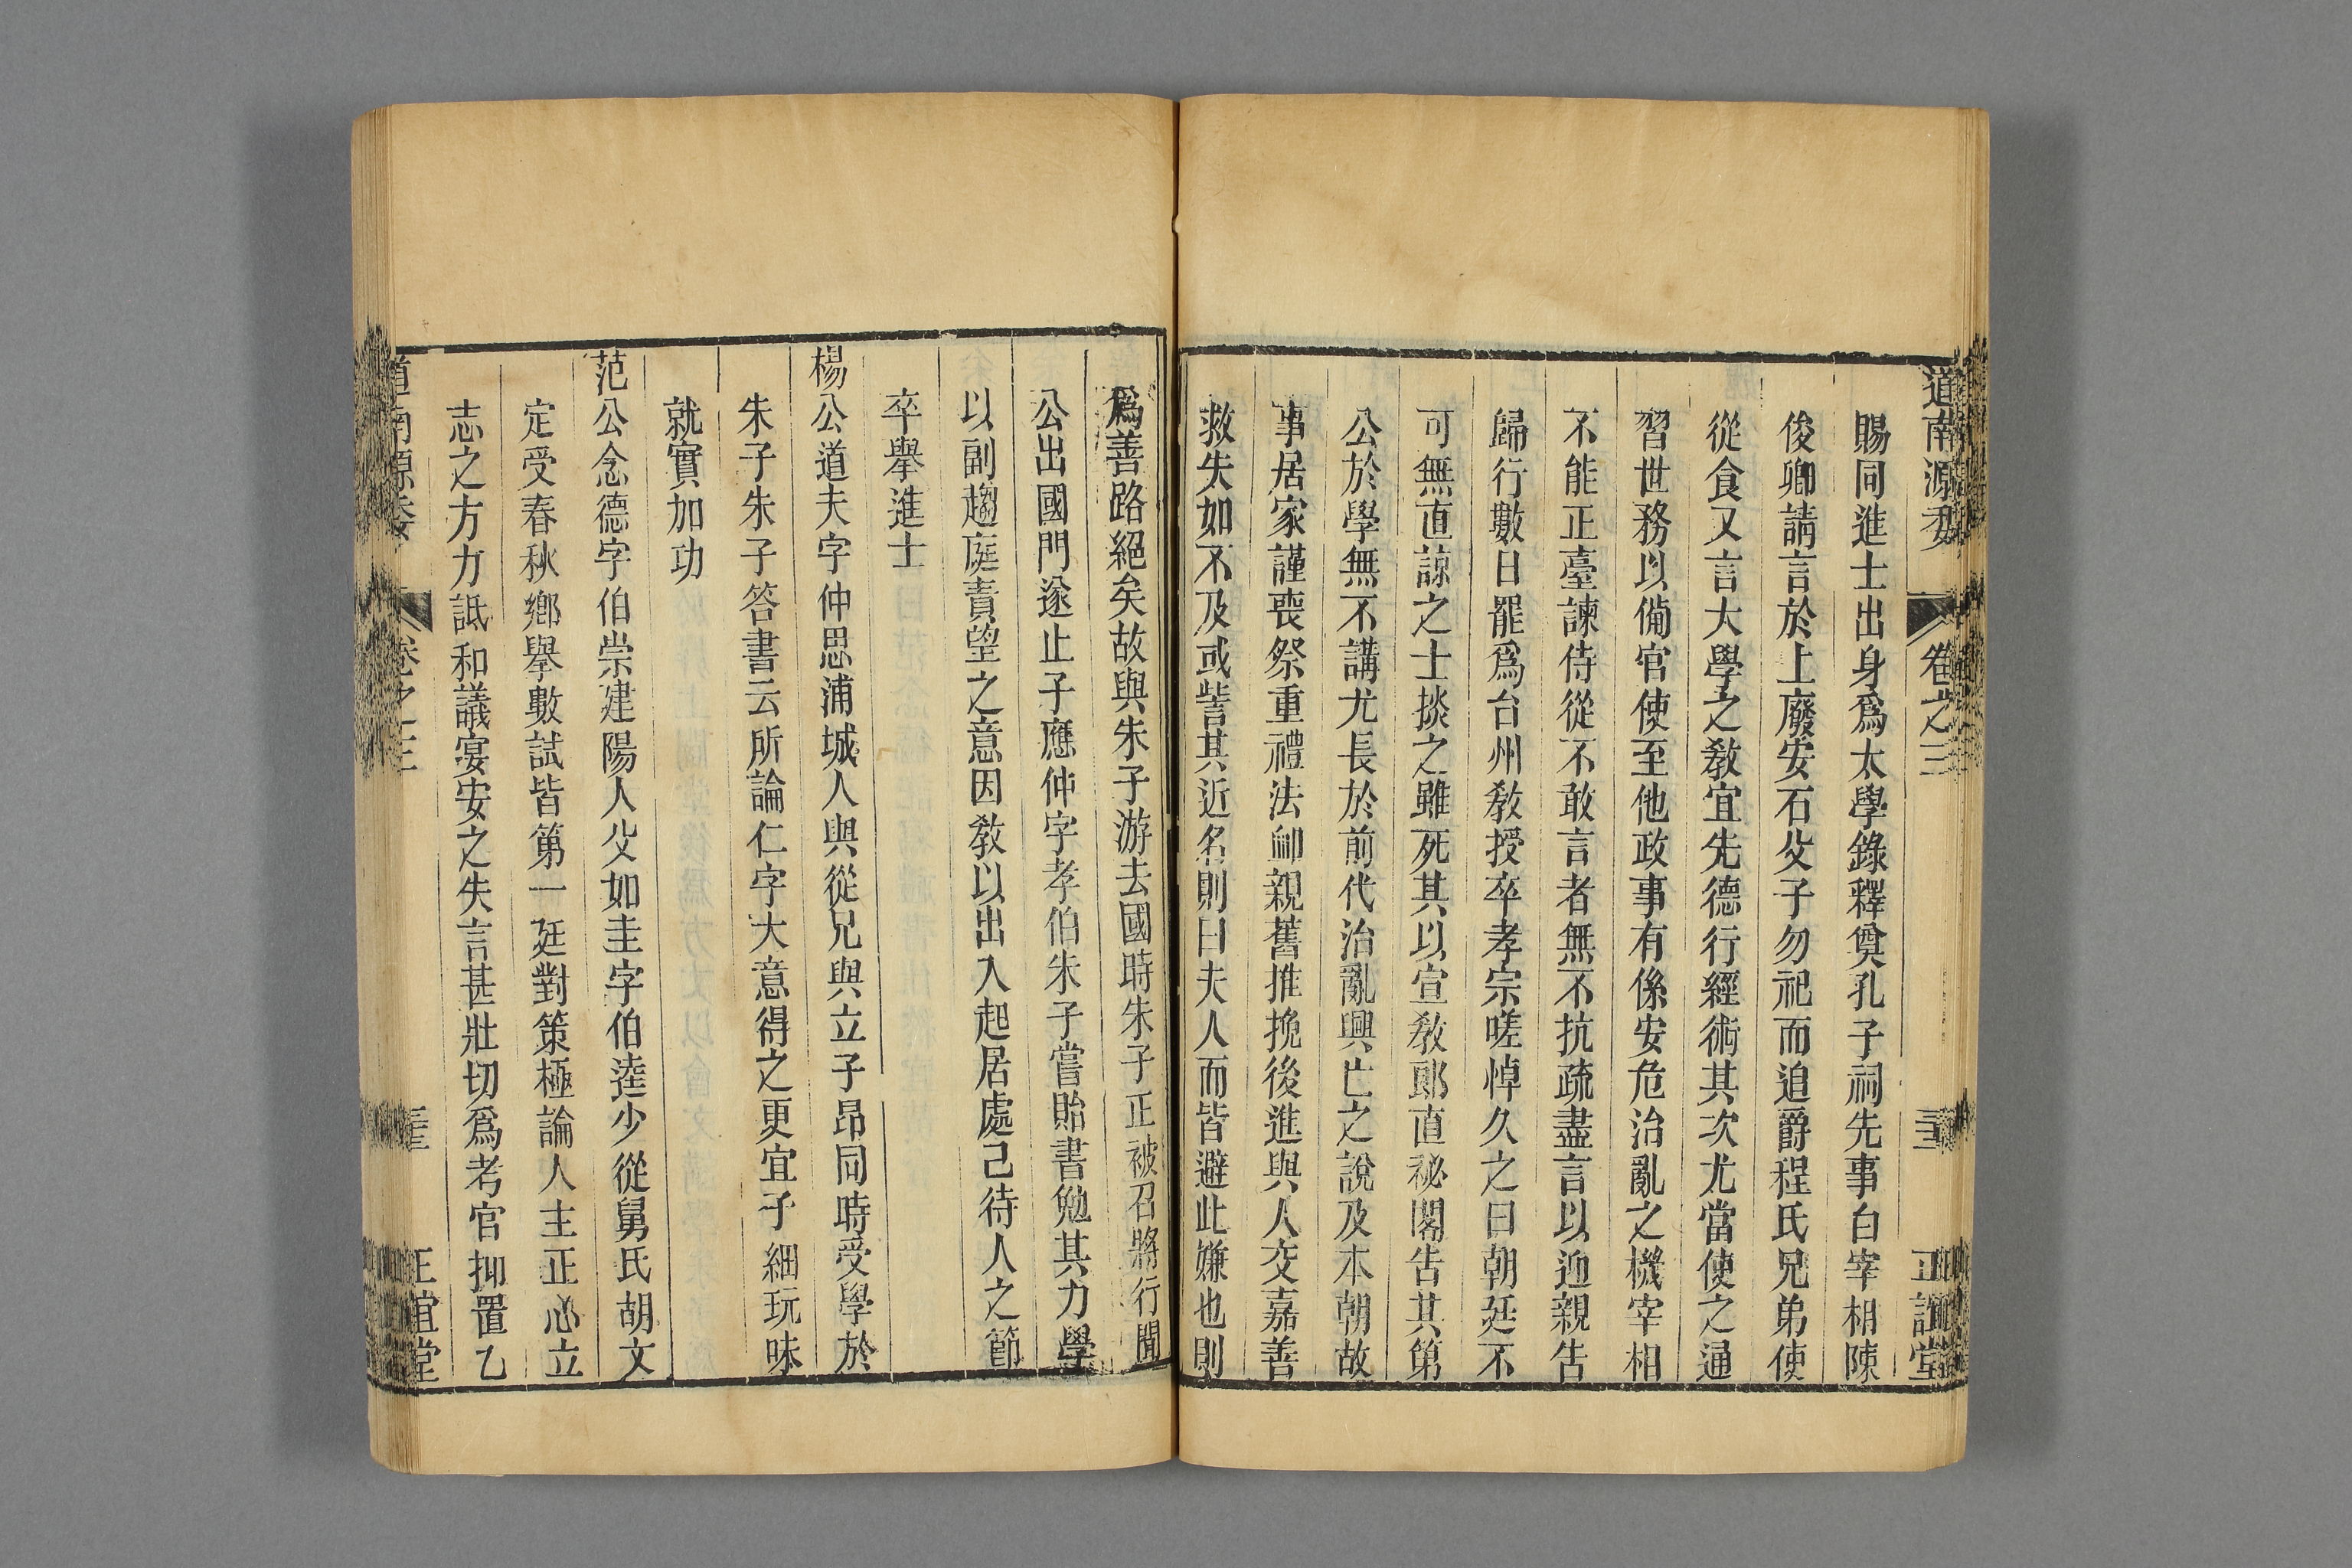 道南源委
卷之三
正誼堂
賜同進士出身爲太學錄釋奠孔子祠先事白宰相陳
俊卿請言於上廢安石父子勿祀而追爵程氏兄弟使
從食又言大學之敎宜先德行經術其次尤當使之通
習世務以備官使至他政事有係安危治亂之機宰相
不能正臺諫侍從不敢言者無不抗疏盡言以迎親告
歸行數日罷爲台州敎授卒孝宗嗟悼久之曰朝廷不
可無直諒之士掞之雖死其以宣敎郎直祕閣告其第
公於學無不講尤長於前代治亂興亡之說及本朝故
事居家謹喪祭重禮法卹親舊推挽後進與人交嘉善
救失如不及或訾其近名則曰夫人而皆避此嫌也則
爲善路絕矣故與朱子游去國時朱子正被召將行聞
公出國門遂止子應仲字孝伯朱子嘗貽書勉其力學
以副趨庭責望之意因敎以出入起居處己待人之節
卒舉進士
楊公道夫字仲思浦城人與從兄與立子昂同時受學於
朱子朱子答書云所論仁字大意得之更宜子細玩味
就實加功
范公念德字伯崇建陽人父如圭字伯逵少從舅氏胡文
定受春秋鄉舉數試皆第一廷對策極論人主正心立
志之方力詆和議宴安之失言甚壯切爲考官抑置乙
道南源委
卷之三
正誼堂